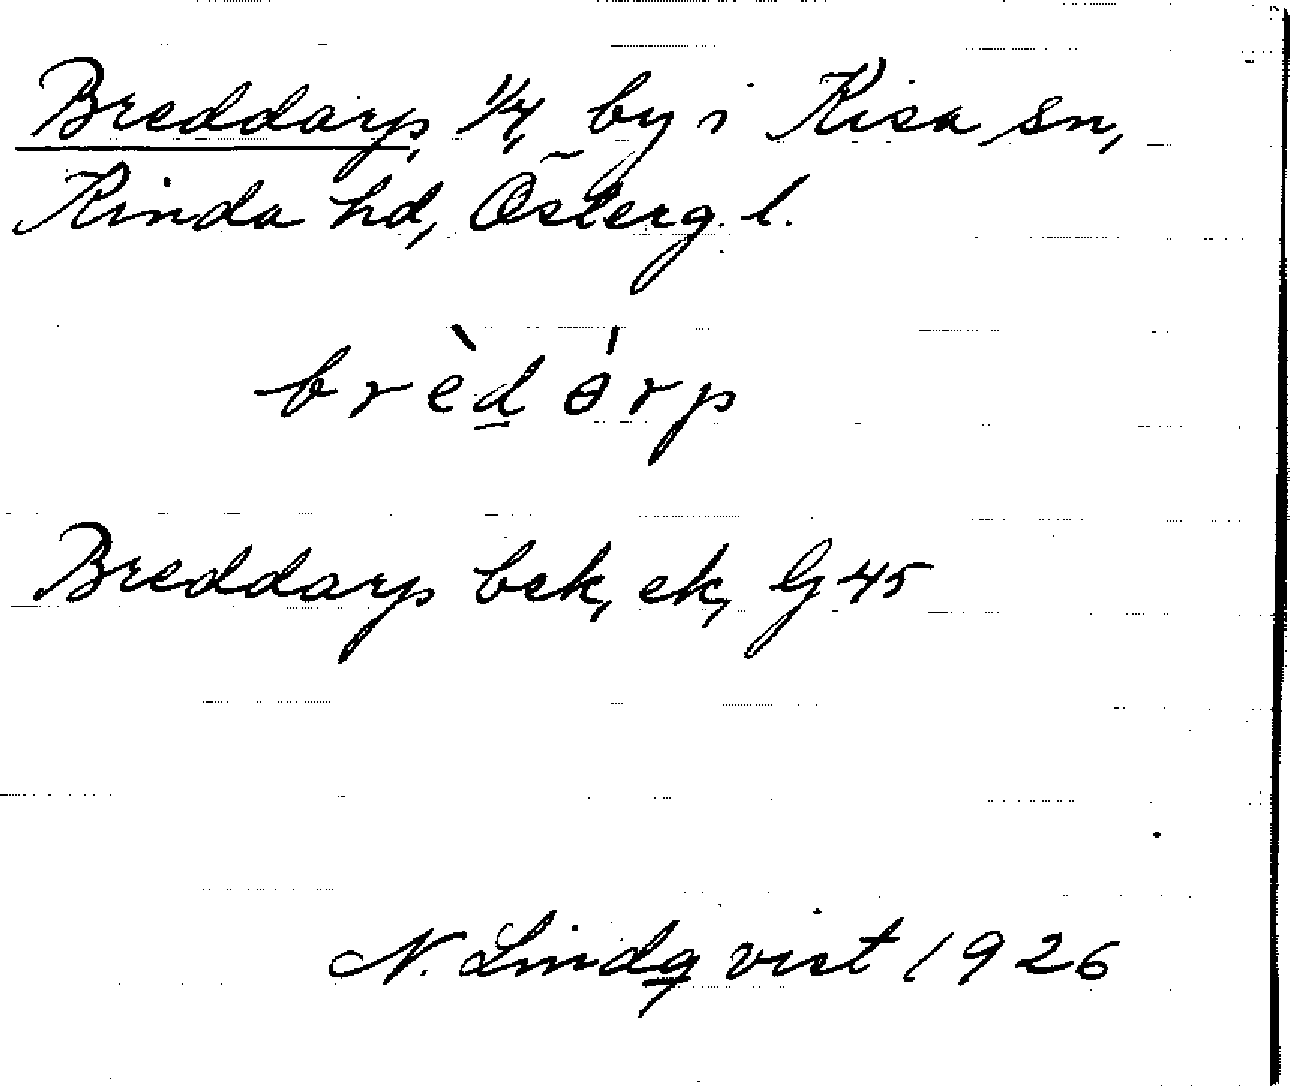 Breddarp, 1/4, by i Kisa sn,
Kinda hd, Österg. l.
brèd ə́rp
Breddarp bek, ek, G 45
N. Lindqvist 1926